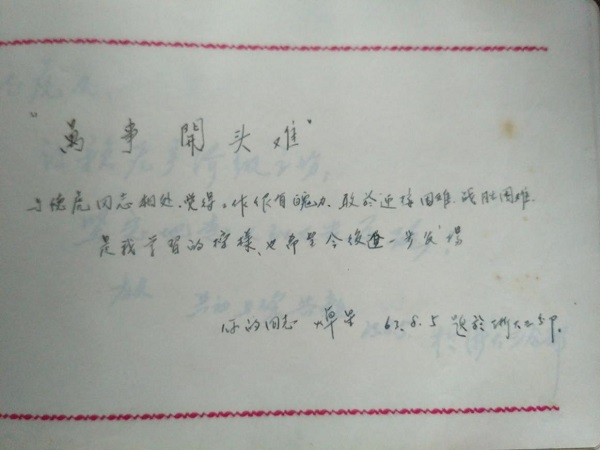 "萬事開头难"
与德尧同志相处,觉得,作作有魄力,敢於迎接困难,战胜困难
是我学习的榜样,也希望今後进一步发揚
你的同志 63.8.5 题於浙大